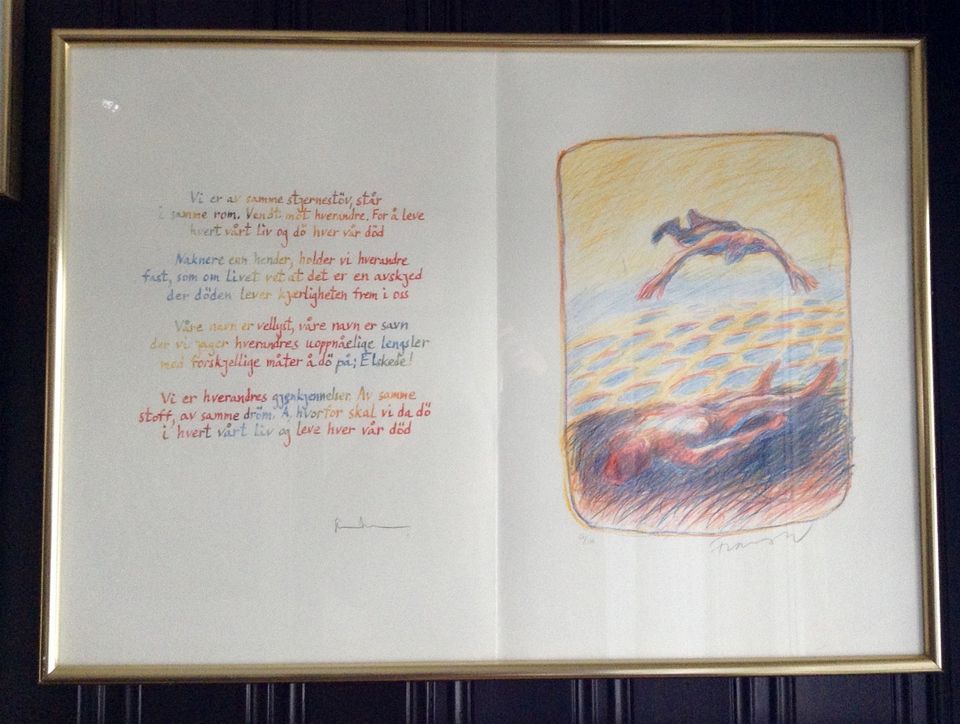 Vi er av samme stjernestöv, står
i samme rom. Vendt mot hverandre. For å leve
hvert vårt liv og dö hver vår död
Naknere enn hender, holder vi hverandre
fast, som om livet vet at det er en avskjed
der döden lever kjærligheten frem i oss
Våre navn er vellyst, våre navn er savn
der vi jager hverandres uoppnåelige lengsler
med forskjellige måter å dö på; Elskede!
Vi er hverandres gjenkjennelser. Av samme
stoff, av samme dröm. Å, hvorfor skal vi da dö
i hvert vårt liv og leve hver vår död